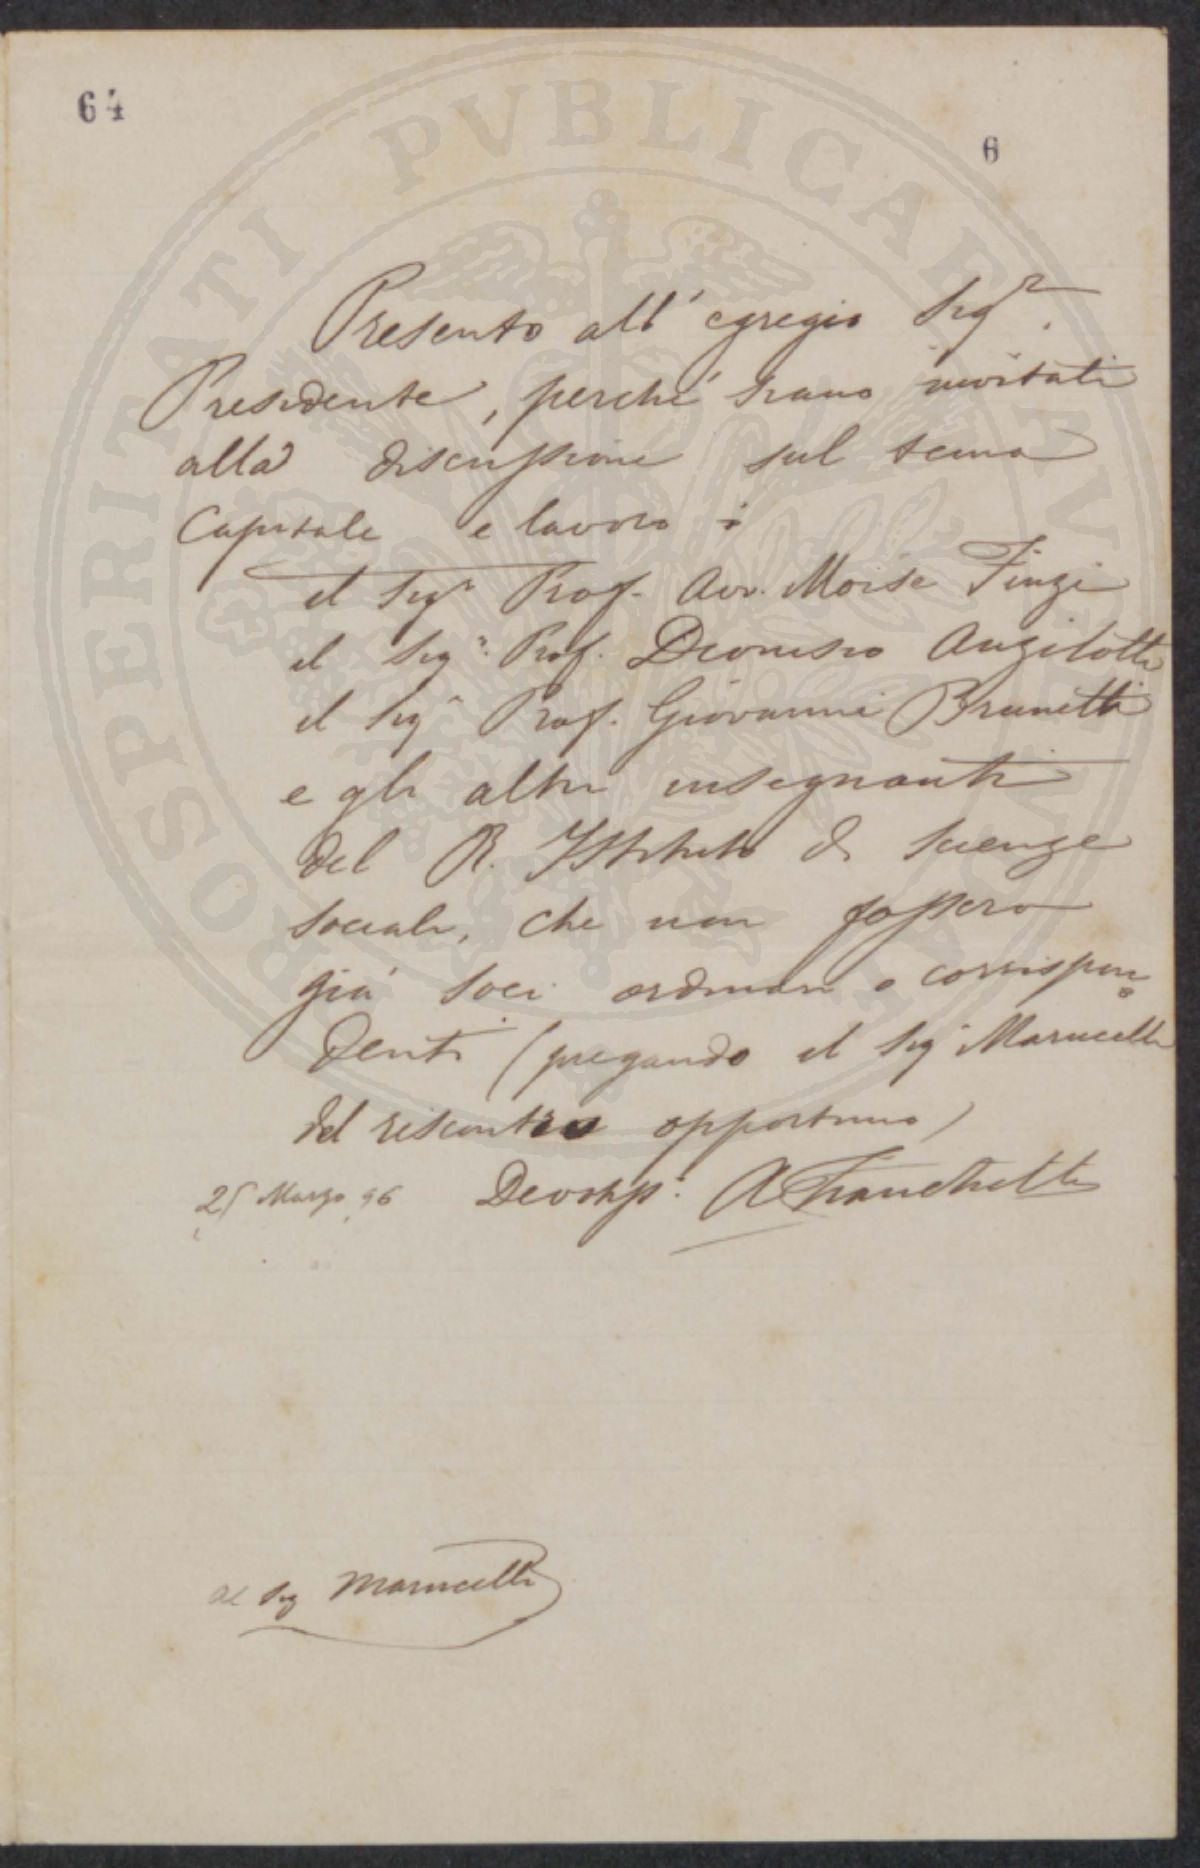 64
6
Presento all'egregio Sigr.
Presidente, perché siano invitati
alla discussione sul tema
Capitale e lavoro:
il Sigr Prof. Avv. Moise Finzi
il Sigr. Prof. Dionisio Anzilotti
il Sigr Prof. Giovanni Brunetti
e gli altri insegnanti
del R. Istituto di Scienze
sociali, che non fossero
già soci ordinari o corrispon
denti (pregando il Sigr Marucelli
del riscontro opportuno)
25 Marzo 96 Devotiss. A Franchetti
al Sig Marucelli
PROSPERITATI PVBLICAE AVGENDAE